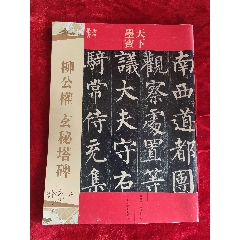 天下
墨寶
柳公權 玄秘塔碑
南西道都團
觀察處置等
議大夫守右
騎常侍充集